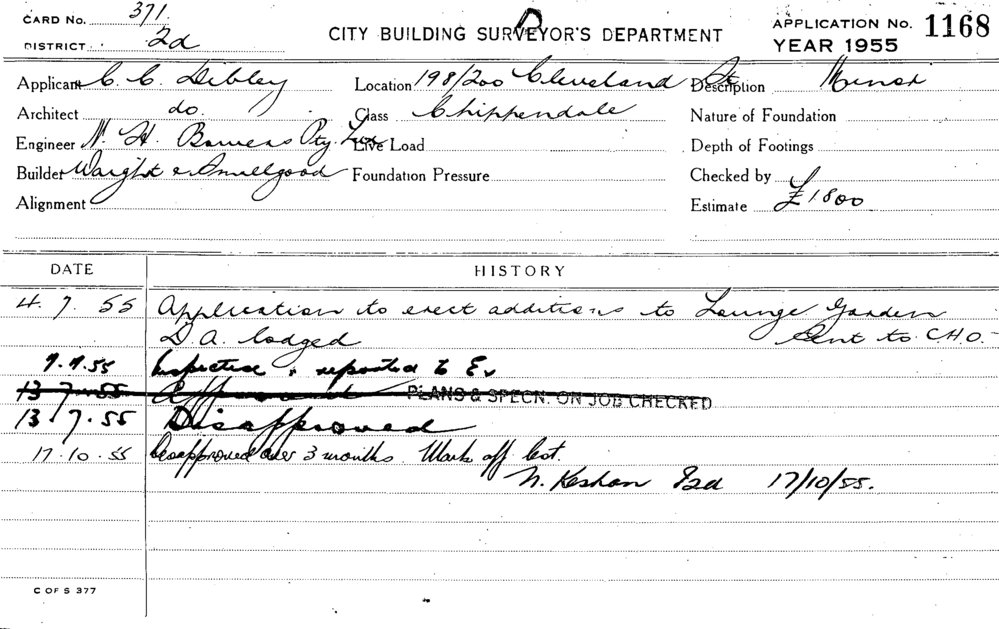 CARD No. 371
DISTRICT 2d
CITY BUILDING SURVEYOR'S DEPARTMENT
D
APPLICATION No. 1168
YEAR 1955
Applicant C. C. Dibley
Location 198/200 Cleveland St
Description Minor
Architect do.
Class Chippendale
Nature of Foundation
Engineer N. H. Bowers Pty. Ltd
Live Load
Depth of Footings
Builder Waight & Smallgood
Foundation Pressure
Checked by
Alignment
Estimate £1800
DATE
HISTORY
4. 7. 55 Application to erect additions to Lounge Garden
D.A. lodged Sent to C.H.O.
7.7.55 Inspected & reported to
13 7 55 Approved PLANS & SPECN. ON JOB CHECKED
13.7.55 Disapproved
17.10.55 Disapproved over 3 months. Mark off list.
N. Keshan 17/10/55.
C OF S 377